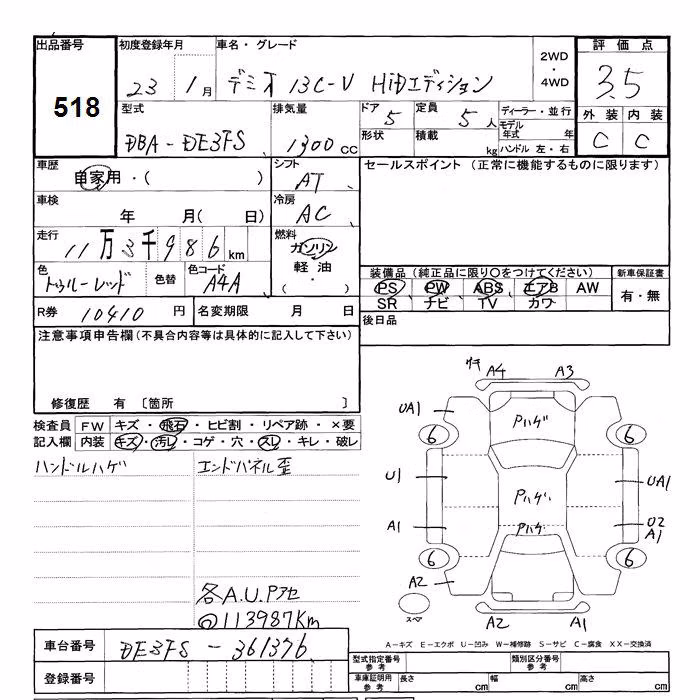 出品番号 518
初度登録年月 23 1月
車名・グレード デミオ 13C-V HIDエディション
2WD・4WD
評価点 3.5
型式 DBA-DE3FS
排気量 1300 cc
ドア 5
形状
定員 5人
積載 kg
ディーラー・並行
モデル年式 年
ハンドル 左・右
外装 内装
C C
車歴 自家用・( )
シフト AT
セールスポイント(正常に機能するものに限ります)
車検 年 月( 日)
冷房 AC
走行 11万3千986km
燃料 ガソリン
軽油
・( )
色 トゥルーレッド
色替
色コード A4A
装備品(純正品に限り○をつけてください)
PS PW ABS エアB AW
SR ナビ TV カワ
新車保証書
有・無
R券 10410円
名変期限 月 日
後日品
注意事項申告欄(不具合内容等は具体的に記入して下さい)
修復歴 有 〔箇所 〕
検査員記入欄
FW キズ・飛石・ヒビ割・リペア跡・×要
内装 キズ・汚レ・コゲ・穴・スレ・キレ・破レ
ハンドルハゲ
エンドパネル歪
各A.U.Pアセ
◎113987Km
車台番号 DE3FS-361376
登録番号
ワキ A4 A3
UA1 Pハゲ
6 6
U1 Pハゲ UA1
A1 Pハゲ U2
A1
6 6
A2
スペア A2 A1
A-キズ E-エクボ U-凹み W-補修跡 S-サビ C-腐食 XX-交換済
型式指定番号参考
類別区分番号参考
車庫証明用参考 長さ cm 幅 cm 高さ cm